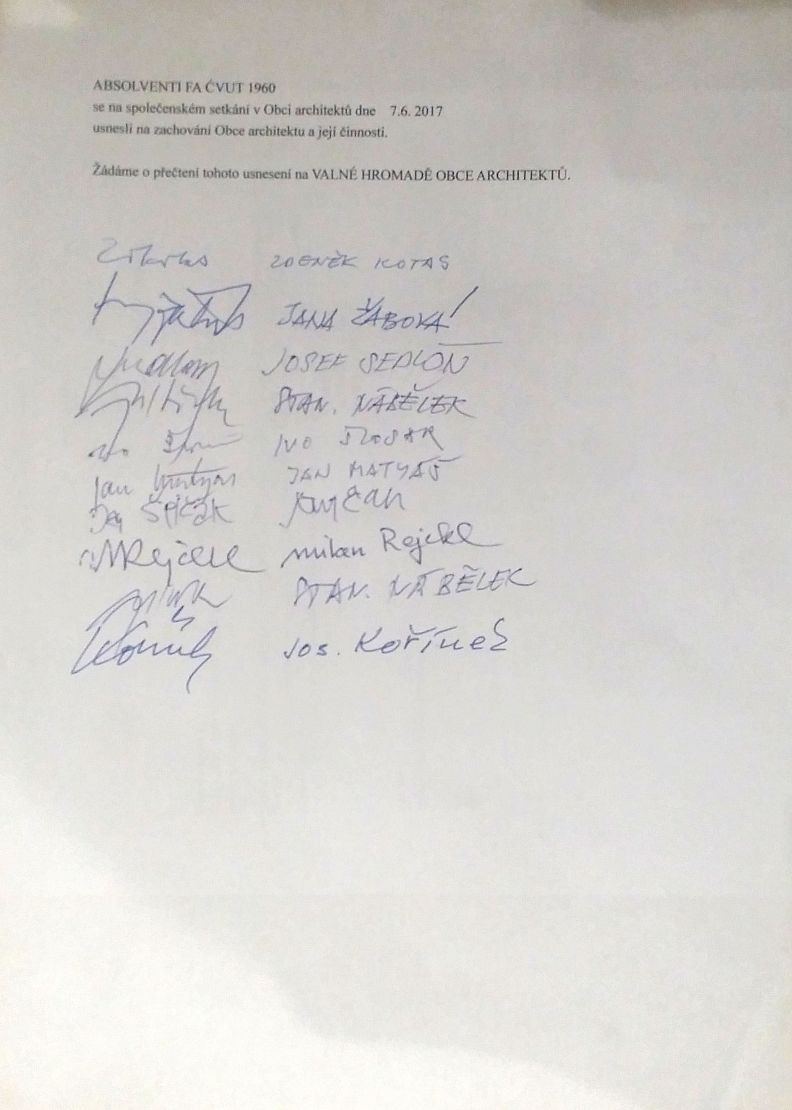 ABSOLVENTI FA ČVUT 1960
se na společenském setkání v Obci architektů dne 7.6. 2017
usnesli na zachování Obce architektu a její činnosti.
Žádáme o přečtení tohoto usnesení na VALNÉ HROMADĚ OBCE ARCHITEKTŮ.
ZDENĚK KOTAS
JANA ŽÁBOVÁ
JOSEF SEDLOŇ
STAN. NÁBĚLEK
IVO ŠLOSAR
Jan Matyáš JAN MATYÁŠ
ŠPIČÁK
MRejchl milan Rejchl
STAN. NÁBĚLEK
Jos. Kořínek